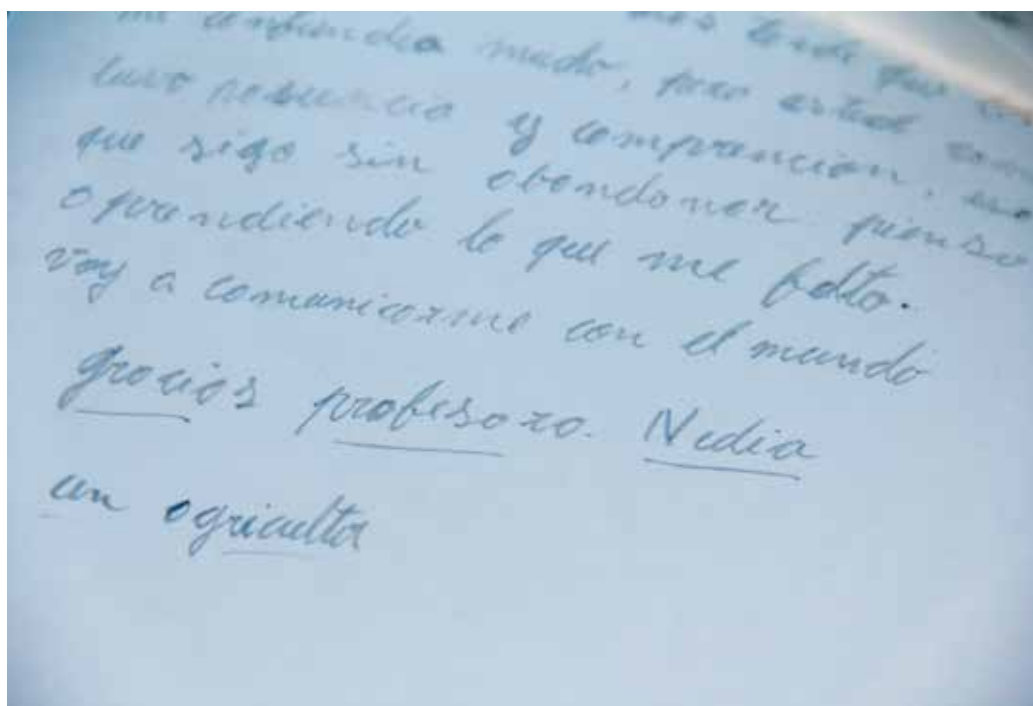 me confundia mucho, pero usted
tuvo pasencia y comprencion,
que sigo sin abandonar pienso
aprendiendo lo que me falta.
voy a comunicarme con el mundo
gracias profesora. Nedia
un agricultor